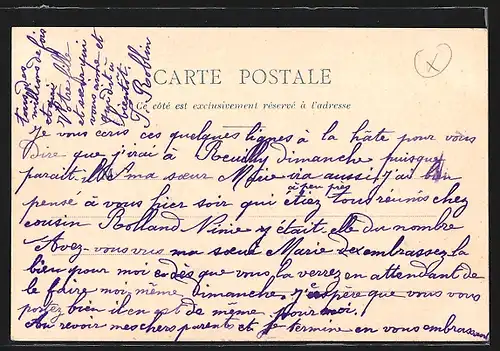 CARTE POSTALE
Ce côté est exclusivement réservé à l'adresse
Je vous ecris ces quelques lignes à la hâte pour vous
dire que j'irai à Reuilly dimanche puisque
parait il ma sœur Marie via aussi j'ai bien
pensé à vous hier soir qui étiez à peu près tous réunis chez
cousin Rolland Ninie y était elle du nombre
Avez-vous vu ma sœur Marie embrassez la
bien pour moi dès que vous la verrez en attendant de
le faire moi même dimanche. J'espère que vous vous
portez bien il en est de meme pour moi.
Au revoir mes chers parents et je termine en vous embrassant
tous des
millions de fois
Votre fille
et sœur qui
vous aime et
bientôt.
J. Roblin